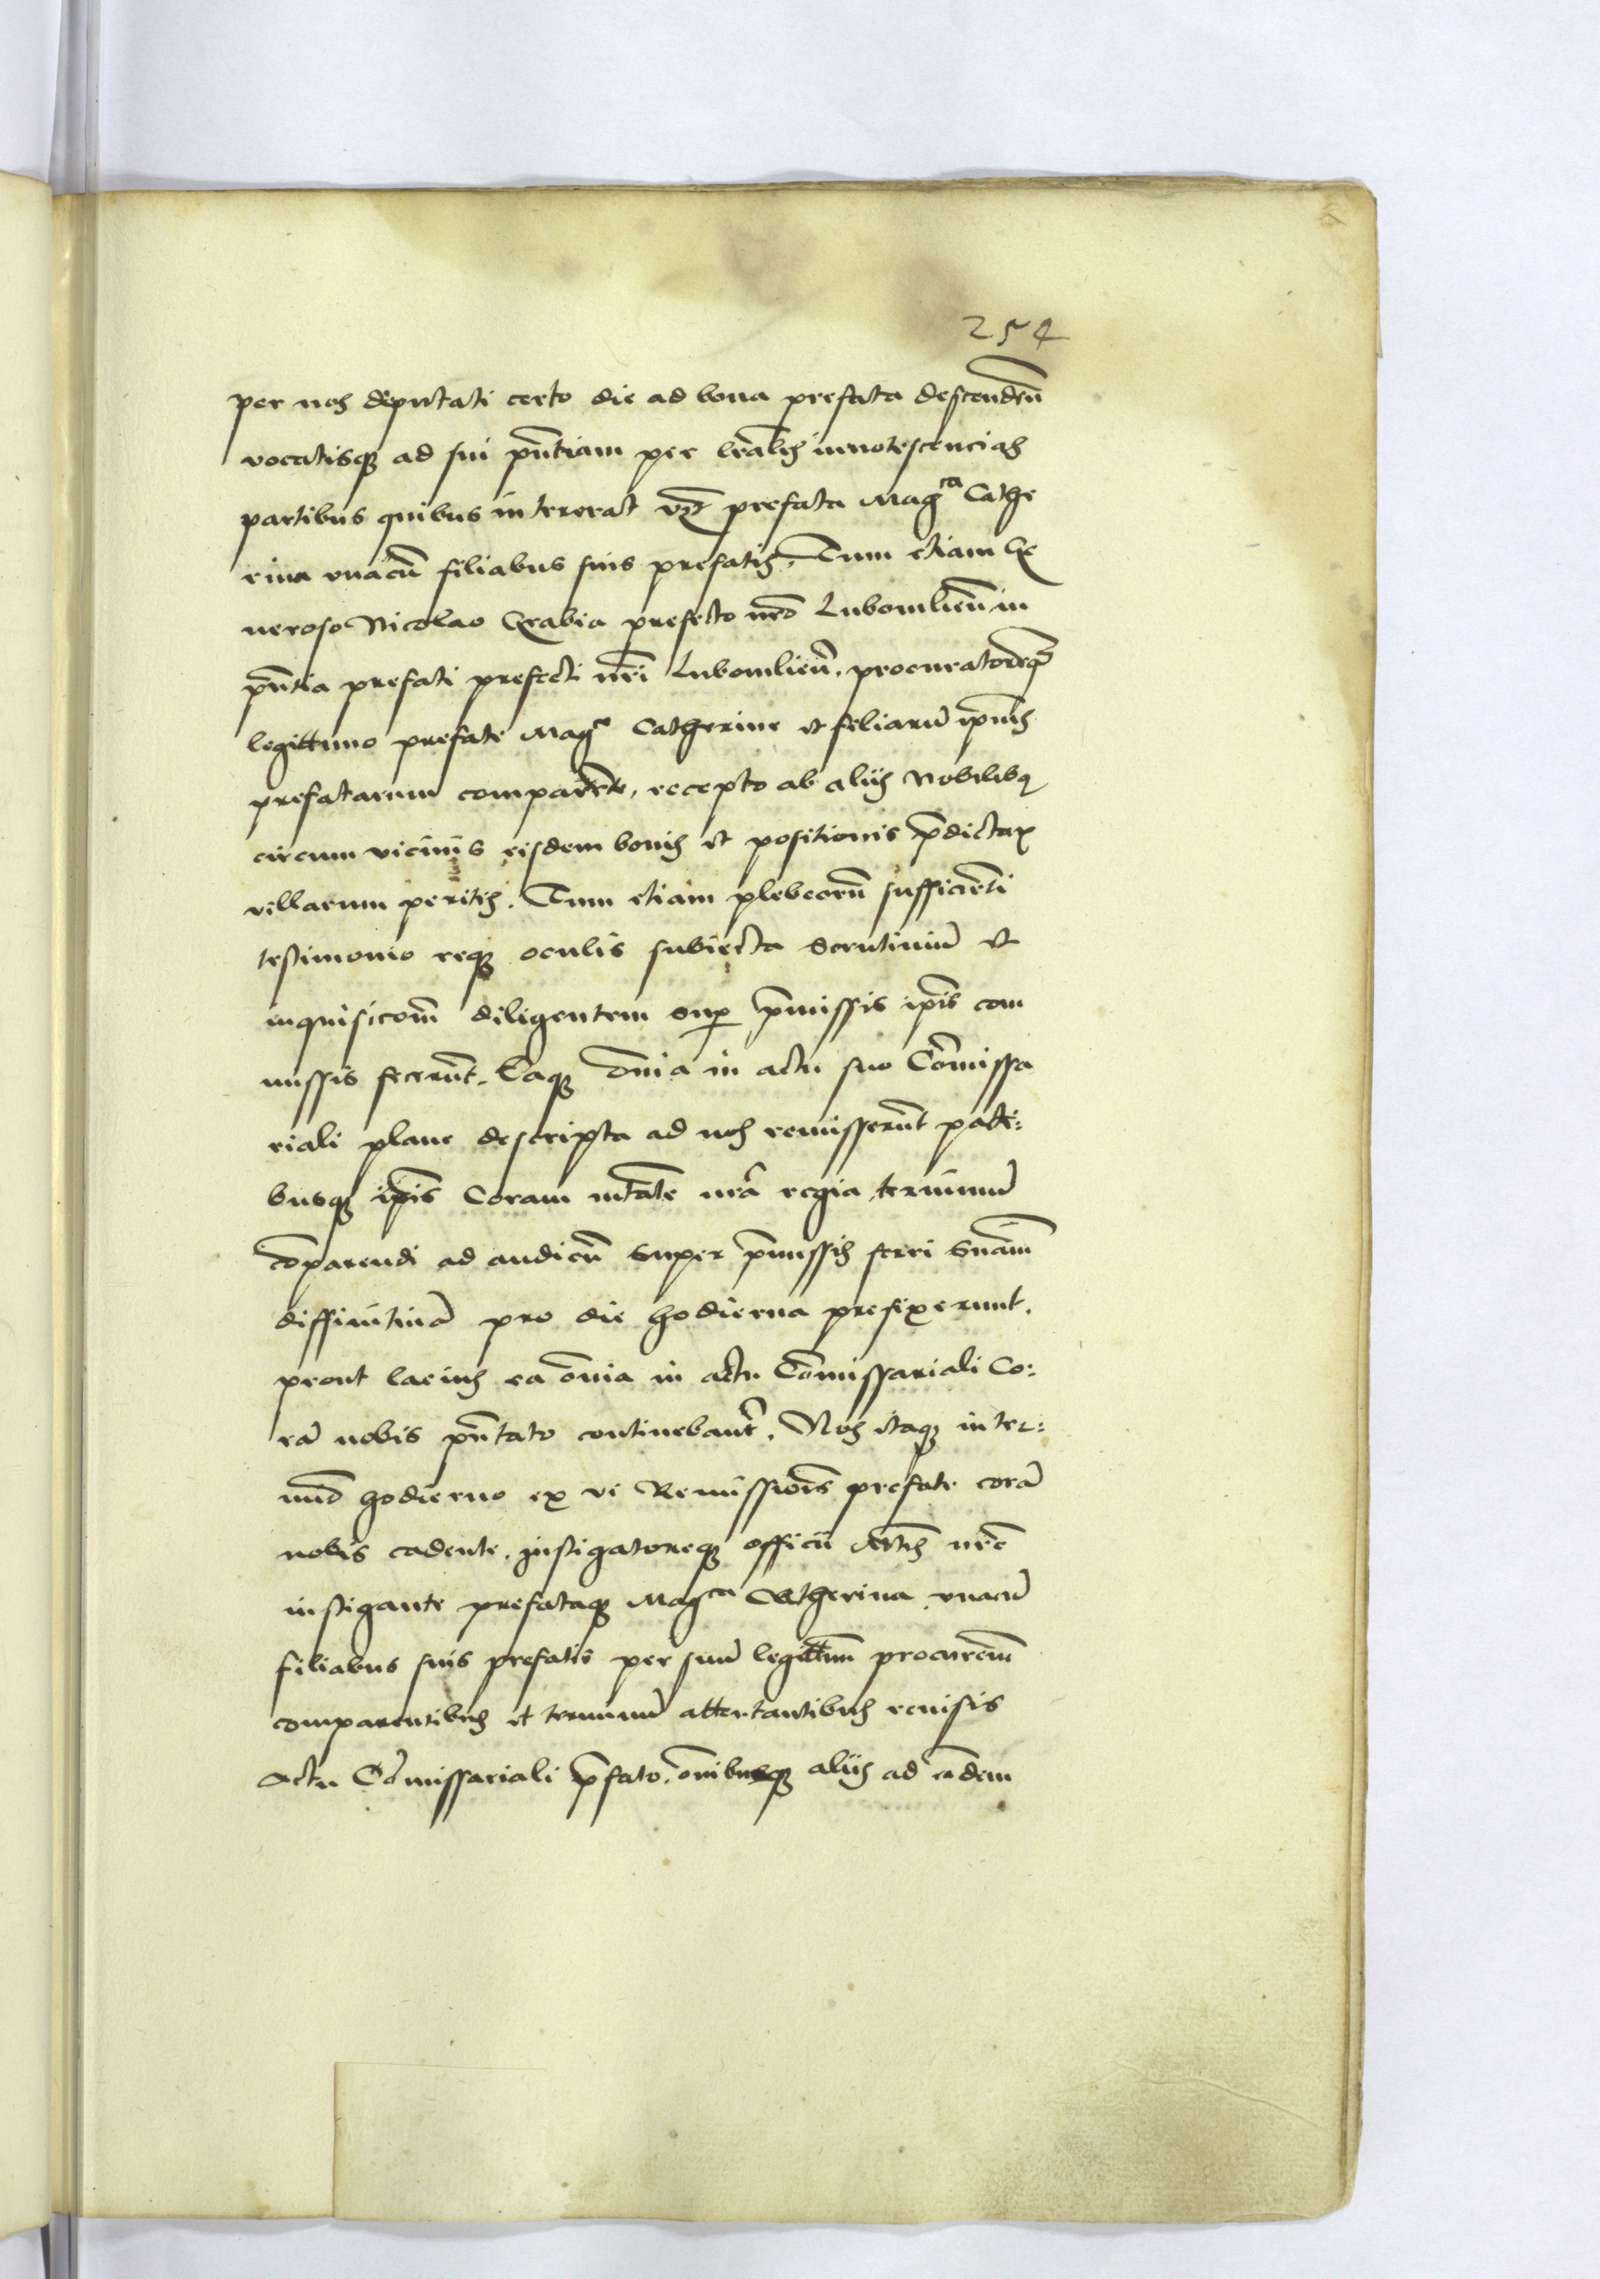 254
per nos deputati certo die ad bona prefata descenden̄
vocatisq; ad sui pn̄tiam per lr̄ales innotescencias
partibus quibus intererat vz̄ prefata Magca Cathe
rina vnacū filiabus suis prefatis. Tum etiam Ge
neroso Nicolao Grabia prefecto nr̄o Lubomlien̄ in
pn̄tia prefati prefecti nr̄i Lubomlien̄. procuratoreq;
legittimo prefate Mage Catherine et filiarū ipsius
prefatarum comparen̄te, recepto ab aliis Nobilibq
circum vicinis eisdem bonis et positionis p̄dictar
villarum peritis. Tum etiam plebeorū sufficien̄ti
testimonio req; oculis subiecta scrutiniū et
inquisicōm̄ diligentem sup p̄missis ip̄is com
missis fecerūnt. Eaq; om̄ia in actu suo Com̄issa
riali plane descripta ad nos remisserūnt parti:
busq; ip̄is Coram mt̄ate nr̄a regia terminū
comparendi ad audien̄ super p̄missis ferri sn̄iam̄
diffinitiuā pro die hodierna prefixerunt.
prout lacius ea om̄ia in actu Com̄issariali Co:
rā nobis pn̄tato continebant̄r. Nos itaq; in ter:
mīo hodierno ex vi Remissiōis prefate corā
nobis cadente. instigatoreq; officii Mtis nr̄e
instigante prefataq; Magca Catherina vnacū
filiabus suis prefatis per suū legittim̄ procurē̄m
comparentibus et terminū attentantibus reuisis
Actu Com̄issariali p̄fato. om̄ibusq; aliis ad eādem